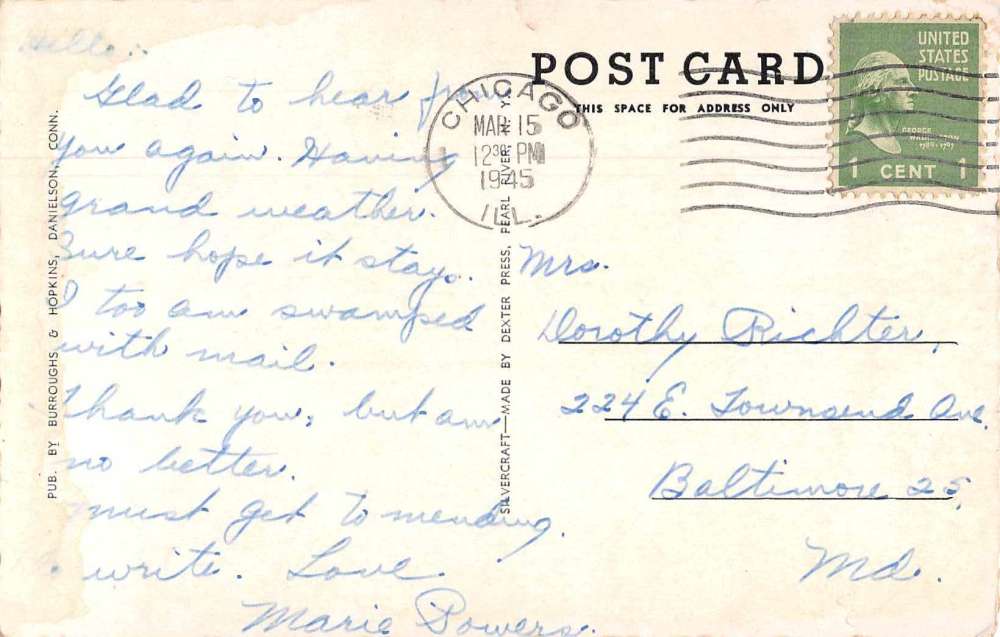 Hello:
Glad to hear from
you again. Having
grand weather.
Sure hope it stays.
I too am swamped
with mail.
Thank you, but am
no better.
must get to mending.
write. Love
Marie Powers.
PUB. BY BURROUGHS & HOPKINS, DANIELSON, CONN.
SILVERCRAFT—MADE BY DEXTER PRESS, PEARL RIVER, N. Y.
POST CARD
THIS SPACE FOR ADDRESS ONLY
CHICAGO
MAR 15
12 30 PM
1945
ILL.
UNITED
STATES
POSTAGE
GEORGE
WASHINGTON
1789-1797
1 CENT 1
Mrs.
Dorothy Richter,
224 E. Townsend Ave.
Baltimore 25,
Md.